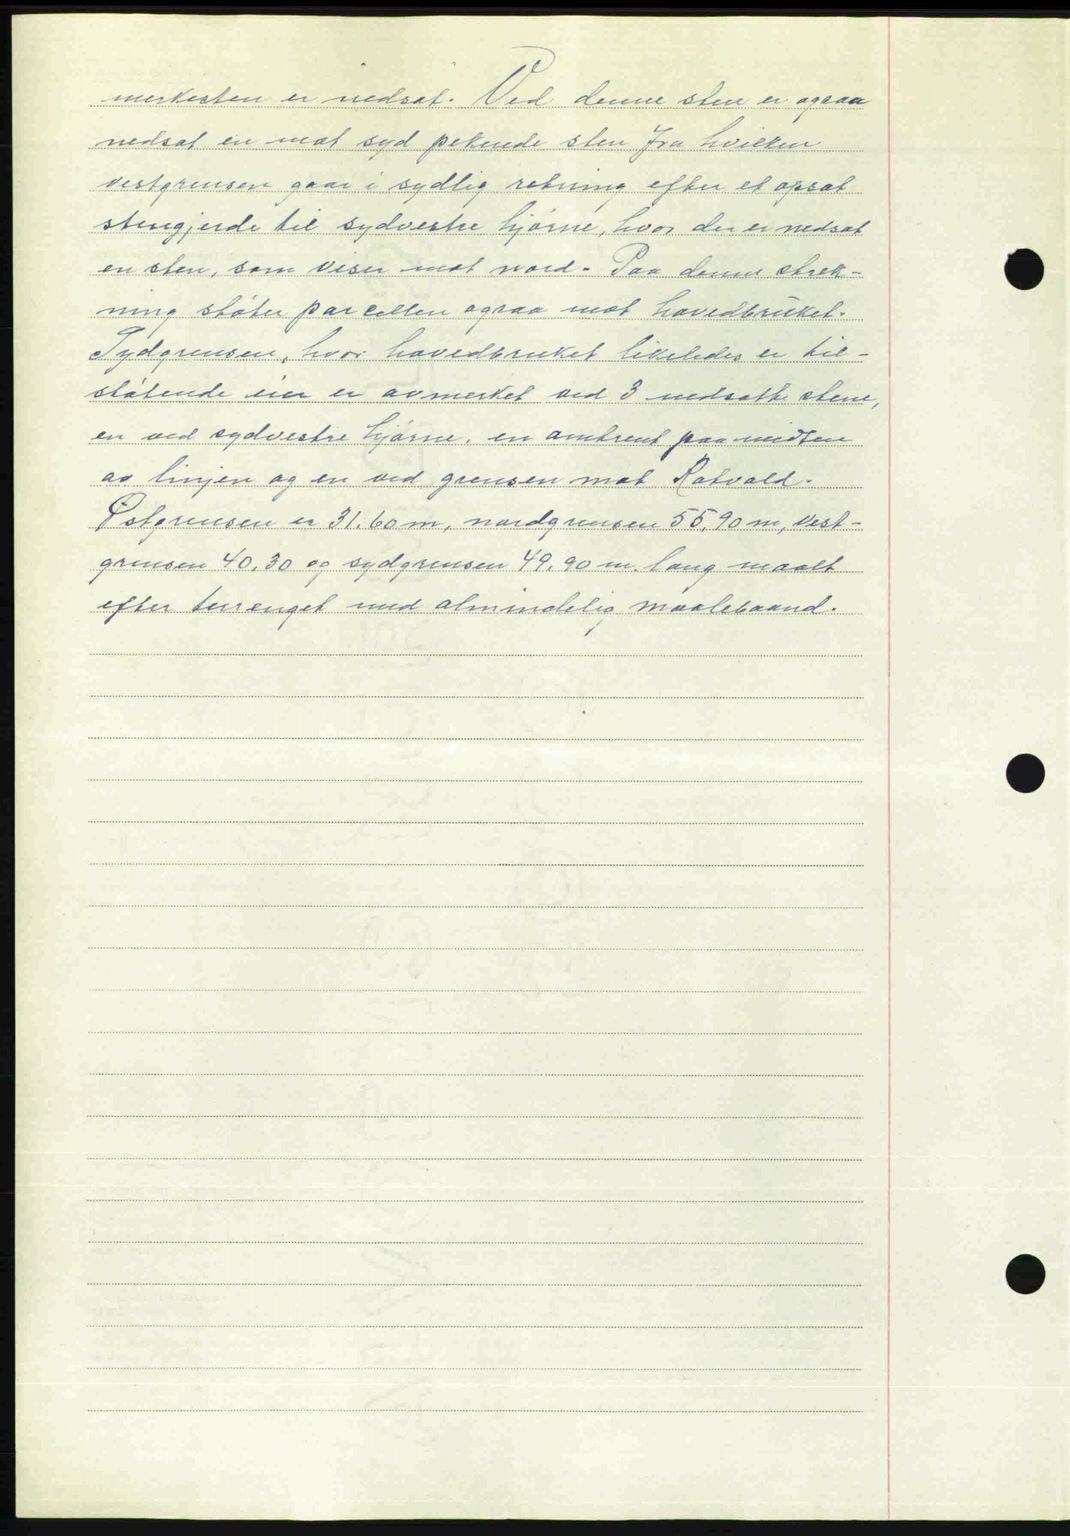 merkesten er nedsat. Ved denne sten er ogsaa
nedsat en mot syd pekende sten fra hvilken
vestgrensen gaar i sydlig retning efter et opsat
stengjerde til sydvestre hjørne, hvor der er nedsat
en sten, som viser mot nord. Paa denne strek-
ning støter parcellen ogsaa mot hovedbruket.
Sydgrensen, hvor hovedbruket likeledes er til-
støtende eier er avmerket ved 3 nedsatte stene,
en ved sydvestre hjørne, en omtrent paa midten
av linjen og en ved grensen mot Rotvold.
Østgrensen er 31.60 m, nordgrensen 55,90 m, vest-
grensen 40.30 og sydgrensen 49.90 m. lang maalt
efter terrenget med almindelig maalebaand.